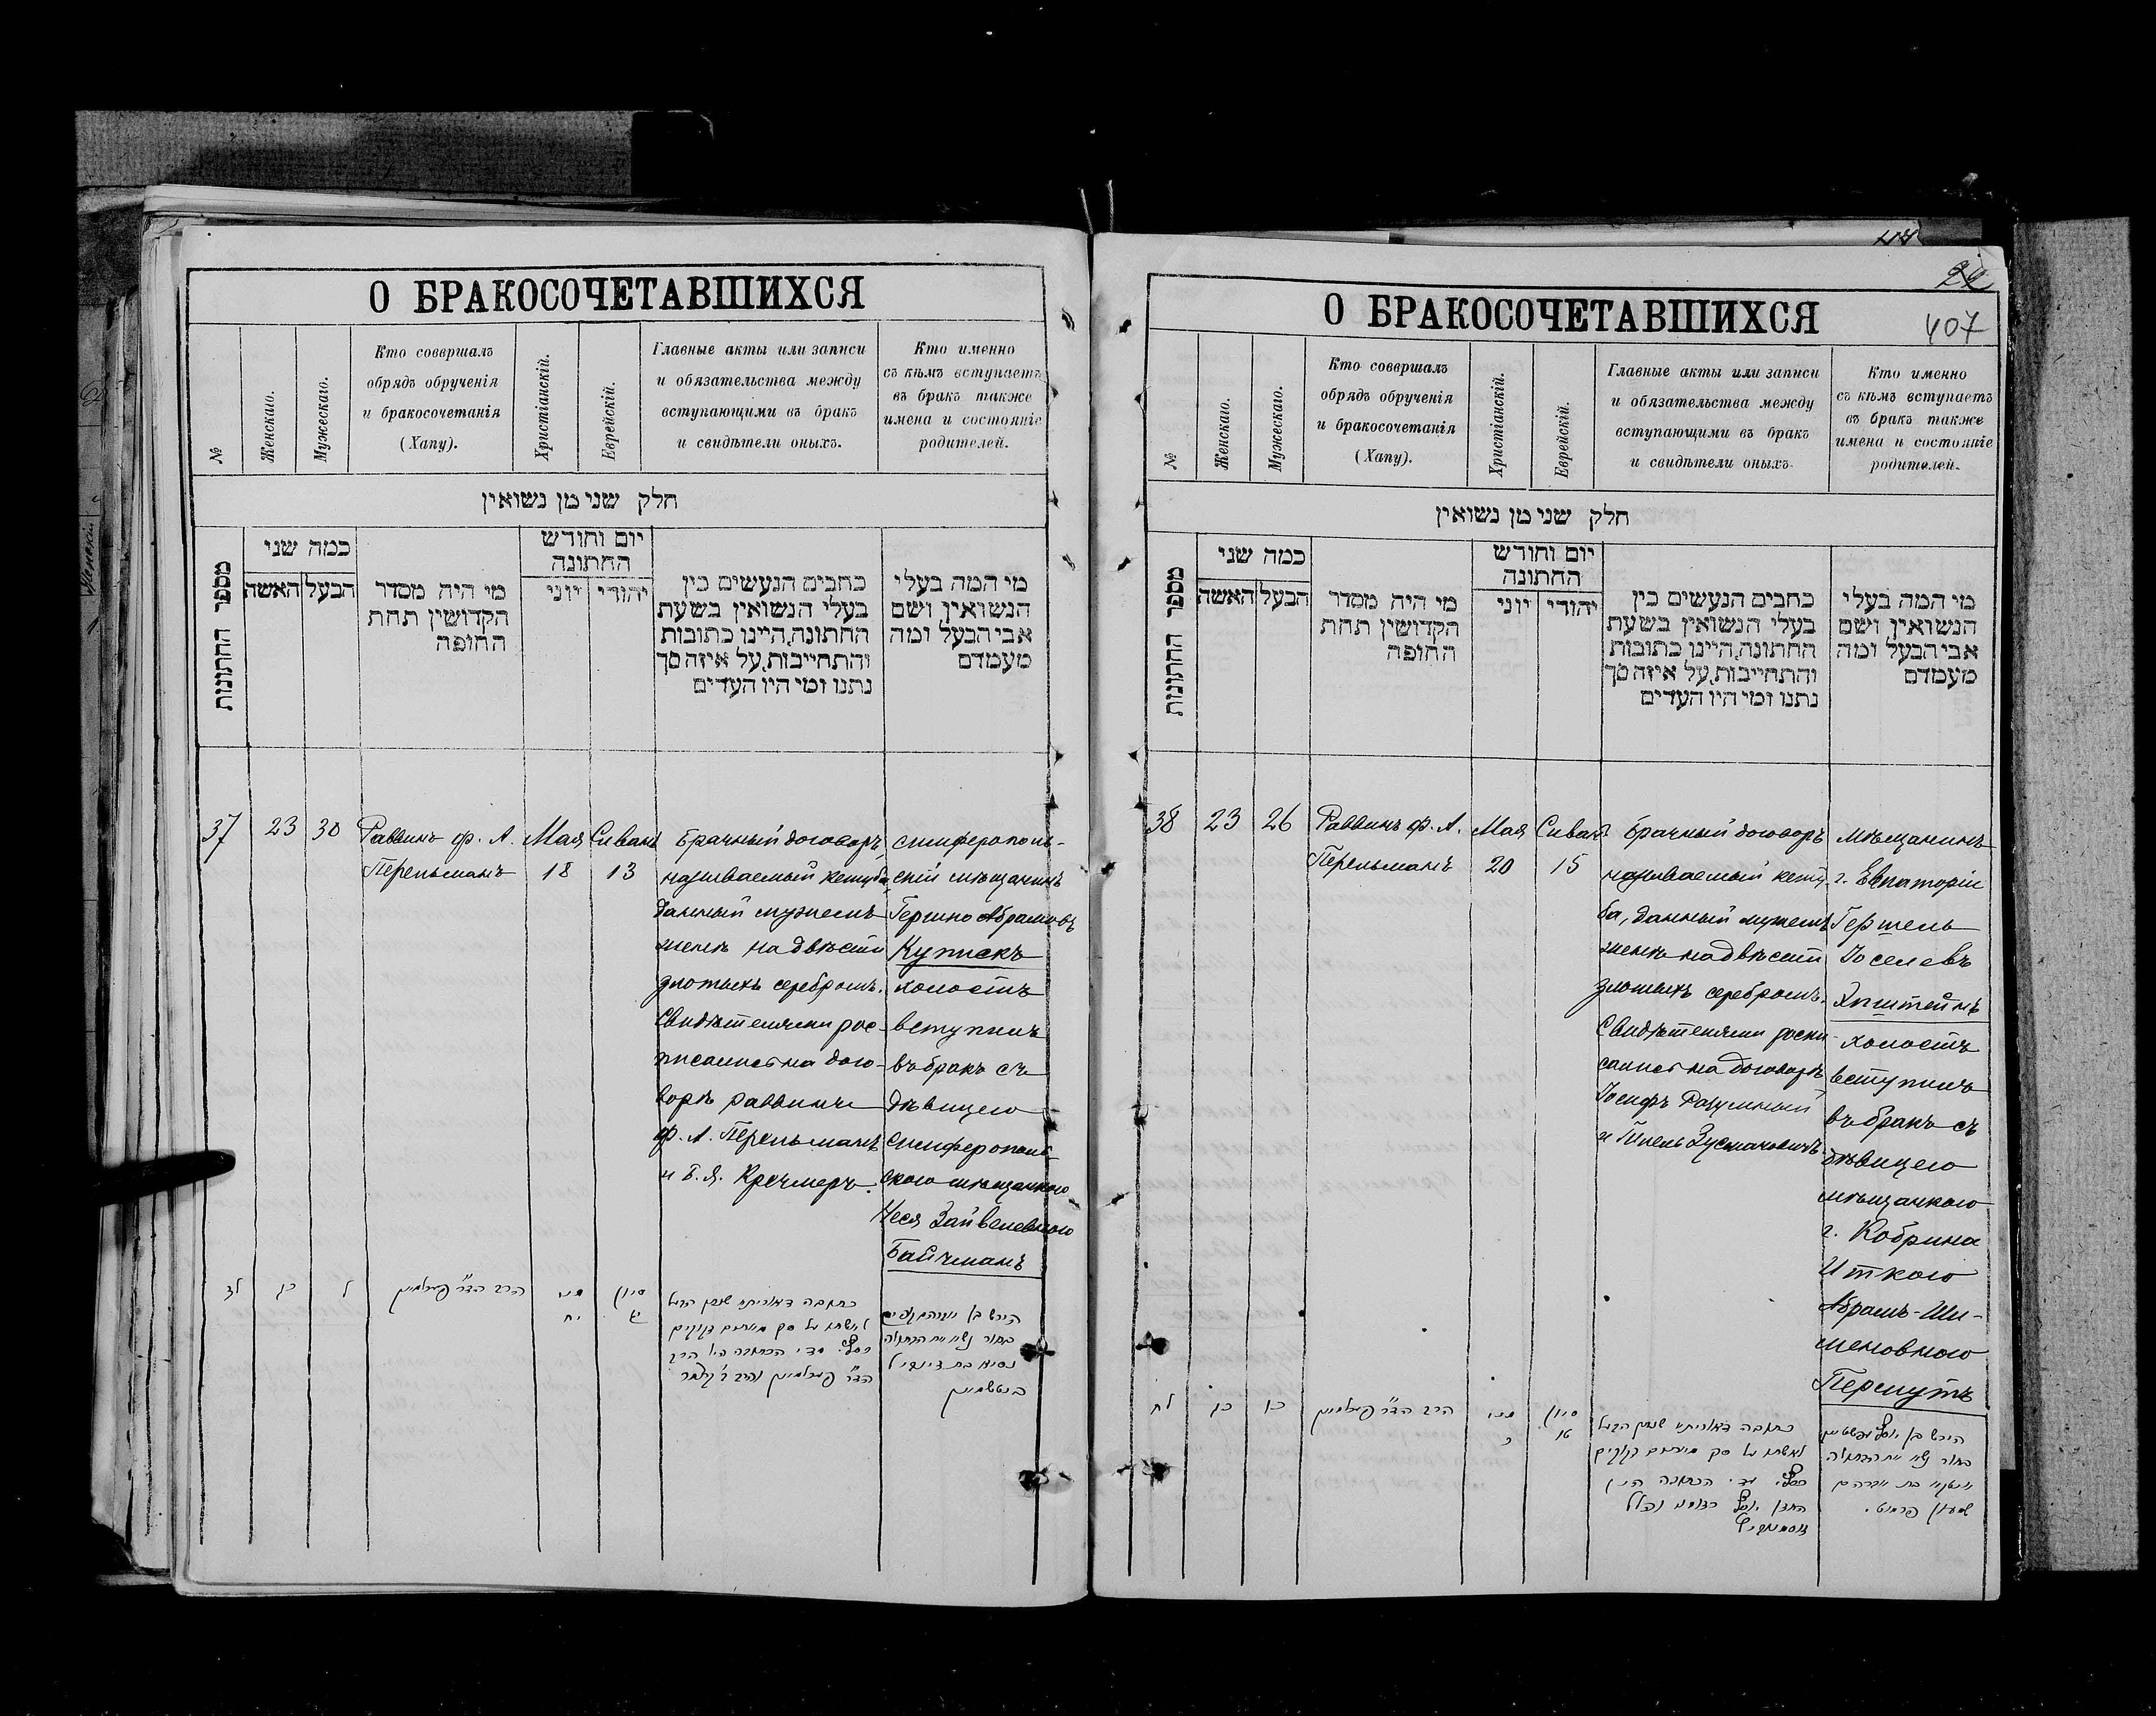 О БРАКОСОЧЕТАВШИХСЯ
№
Женскаго.
Мужескаго.
Кто совершалъ
обрядъ обрученія
и бракосочетанія
(Хапу).
Христіанскій.
Еврейскій.
Главные акты или записи
и обязательства между
вступающими въ бракъ
и свидѣтели оныхъ.
Кто именно
съ кѣмъ вступаетъ
въ бракъ также
имена и состояніе
родителей.
חלק שני מן נשואין
מספר החתונות
כמה שני
האשה
הבעל
מי היה מסדר
הקדושין תחת
החופה
יום וחודש
החתונה
יוני
יהודי
כתבים הנעשים בין
בעלי הנשואין בשעת
החתונה, היינו כתובות
והתחייבות, על איזה סך
נתנו ומי היו העדים
מי המה בעלי
הנשואין ושם
אבי הבעל ומה
מעמדם
37
23
30
Раввинъ Ф. А.
Перельманъ
Мая
18
Сиванъ
13
Брачный договоръ,
называемый кетуба,
данный мужемъ
женѣ на двѣсти
злотыхъ серебромъ.
Свидѣтелями рос-
писались на дого-
ворѣ раввинъ
Ф. А. Перельманъ
и Б. Я. Кречмеръ.
Симферополь-
скій мѣщанинъ
Гершко Абрамовъ
Купчекъ
холостъ
вступилъ
въ бракъ съ
дѣвицею
Симферополь-
скою мѣщанкою
Неся Зайвелевною
Байчманъ
לז
כג
ל
הרב הד״ר פערלמאן
מאי
יח
סיון
יג
כתובה דאורייתא שנתן הבעל
לאשתו על סך מאתים זקוקים
כסף. עדי הכתובה היו הרב
הד״ר פערלמאן
הירש בן אברהם
בחור נשא את הבתולה
נסיא בת
О БРАКОСОЧЕТАВШИХСЯ
407
№
Женскаго.
Мужескаго.
Кто совершалъ
обрядъ обрученія
и бракосочетанія
(Хапу).
Христіанскій.
Еврейскій.
Главные акты или записи
и обязательства между
вступающими въ бракъ
и свидѣтели оныхъ.
Кто именно
съ кѣмъ вступаетъ
въ бракъ также
имена и состояніе
родителей.
חלק שני מן נשואין
מספר החתונות
כמה שני
האשה
הבעל
מי היה מסדר
הקדושין תחת
החופה
יום וחודש
החתונה
יוני
יהודי
כתבים הנעשים בין
בעלי הנשואין בשעת
החתונה, היינו כתובות
והתחייבות, על איזה סך
נתנו ומי היו העדים
מי המה בעלי
הנשואין ושם
אבי הבעל ומה
מעמדם
38
23
26
Раввинъ Ф. А.
Перельманъ
Мая
20
Сиванъ
15
Брачный договоръ
называемый кету-
ба, данный мужемъ
женѣ на двѣсти
злотыхъ серебромъ.
Свидѣтелями роспи-
сались на договорѣ
Іосифъ Разумный
и Гилель Зусмановичъ.
Мѣщанинъ
г. Евпаторіи
Гершель
Іоселевъ
Эпштейнъ
холостъ
вступилъ
въ бракъ съ
дѣвицею
мѣщанкою
г. Кобрина
Иткою
Абрамъ-Ши-
меновною
Пермутъ
לח
כג
כו
הרב הד״ר פערלמאן
מאי
כ
סיון
טו
כתובה דאורייתא שנתן הבעל
לאשתו על סך מאתים זקוקים
כסף. עדי הכתובה היו
יוסף והלל
הירש בן יוסף עפשטיין
בחור נשא את הבתולה
בת אברהם
שמעון פרמוט.